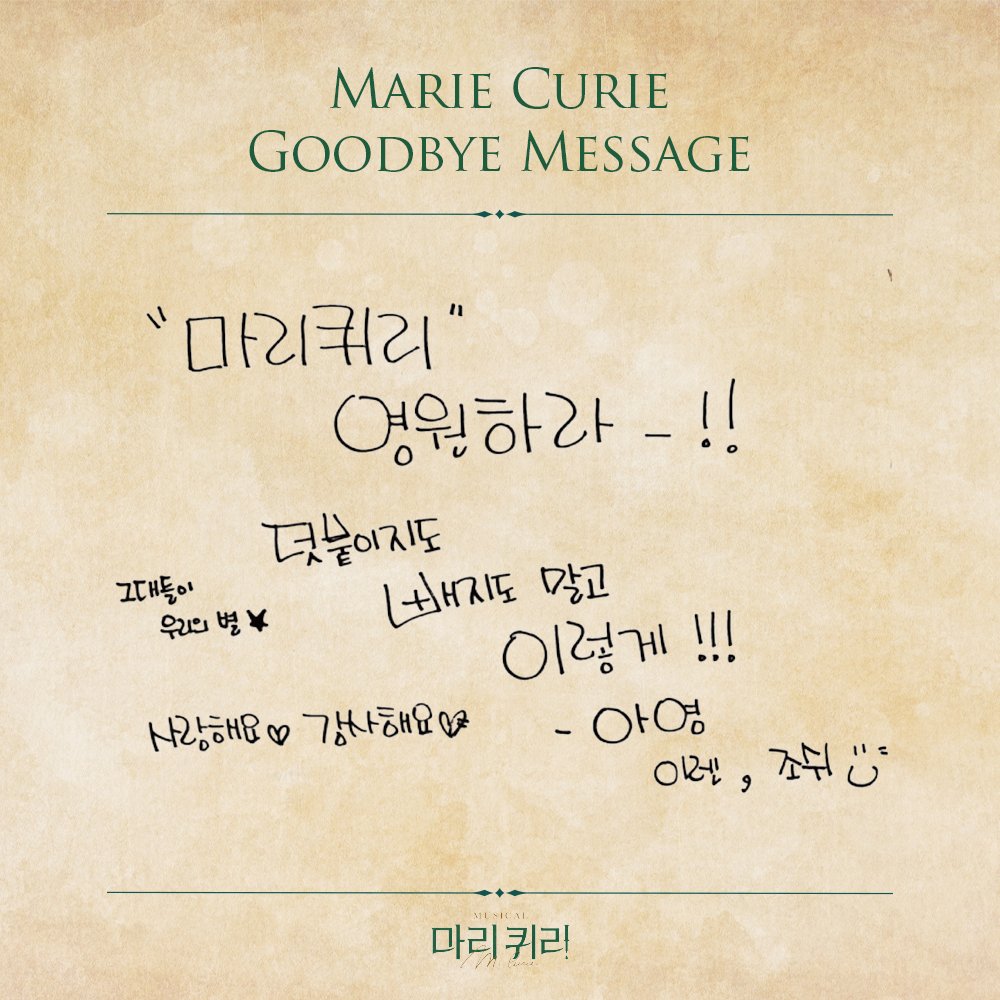 MARIE CURIE
GOODBYE MESSAGE
"마리퀴리"
영원하라 - !!
덧붙이지도
빼지도 말고
이렇게 !!!
그대들이
우리의 별 ★
사랑해요♡ 감사해요♡
- 아영
이렌, 조쉬
MUSICAL
마리 퀴리